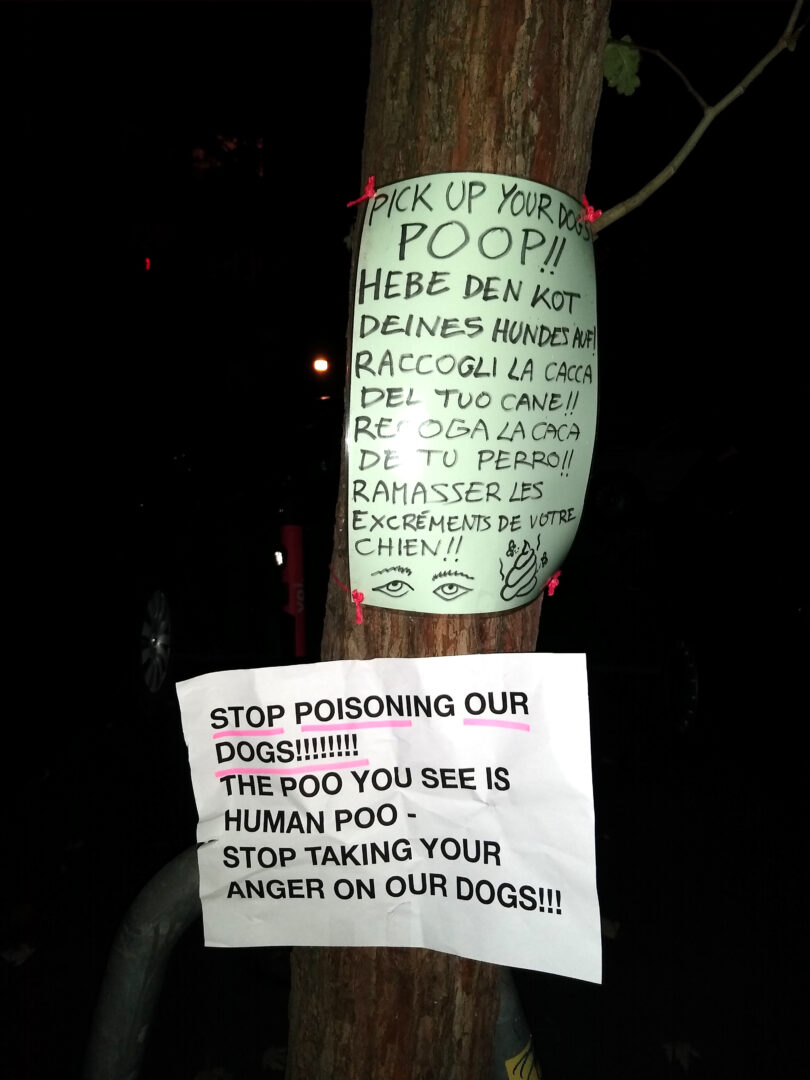 PICK UP YOUR DOGS
POOP!!
HEBE DEN KOT
DEINES HUNDES AUF!
RACCOGLI LA CACCA
DEL TUO CANE!!
RECOGA LA CACA
DE TU PERRO!!
RAMASSER LES
EXCRÉMENTS DE VOTRE
CHIEN!!
STOP POISONING OUR
DOGS!!!!!!!!
THE POO YOU SEE IS
HUMAN POO -
STOP TAKING YOUR
ANGER ON OUR DOGS!!!